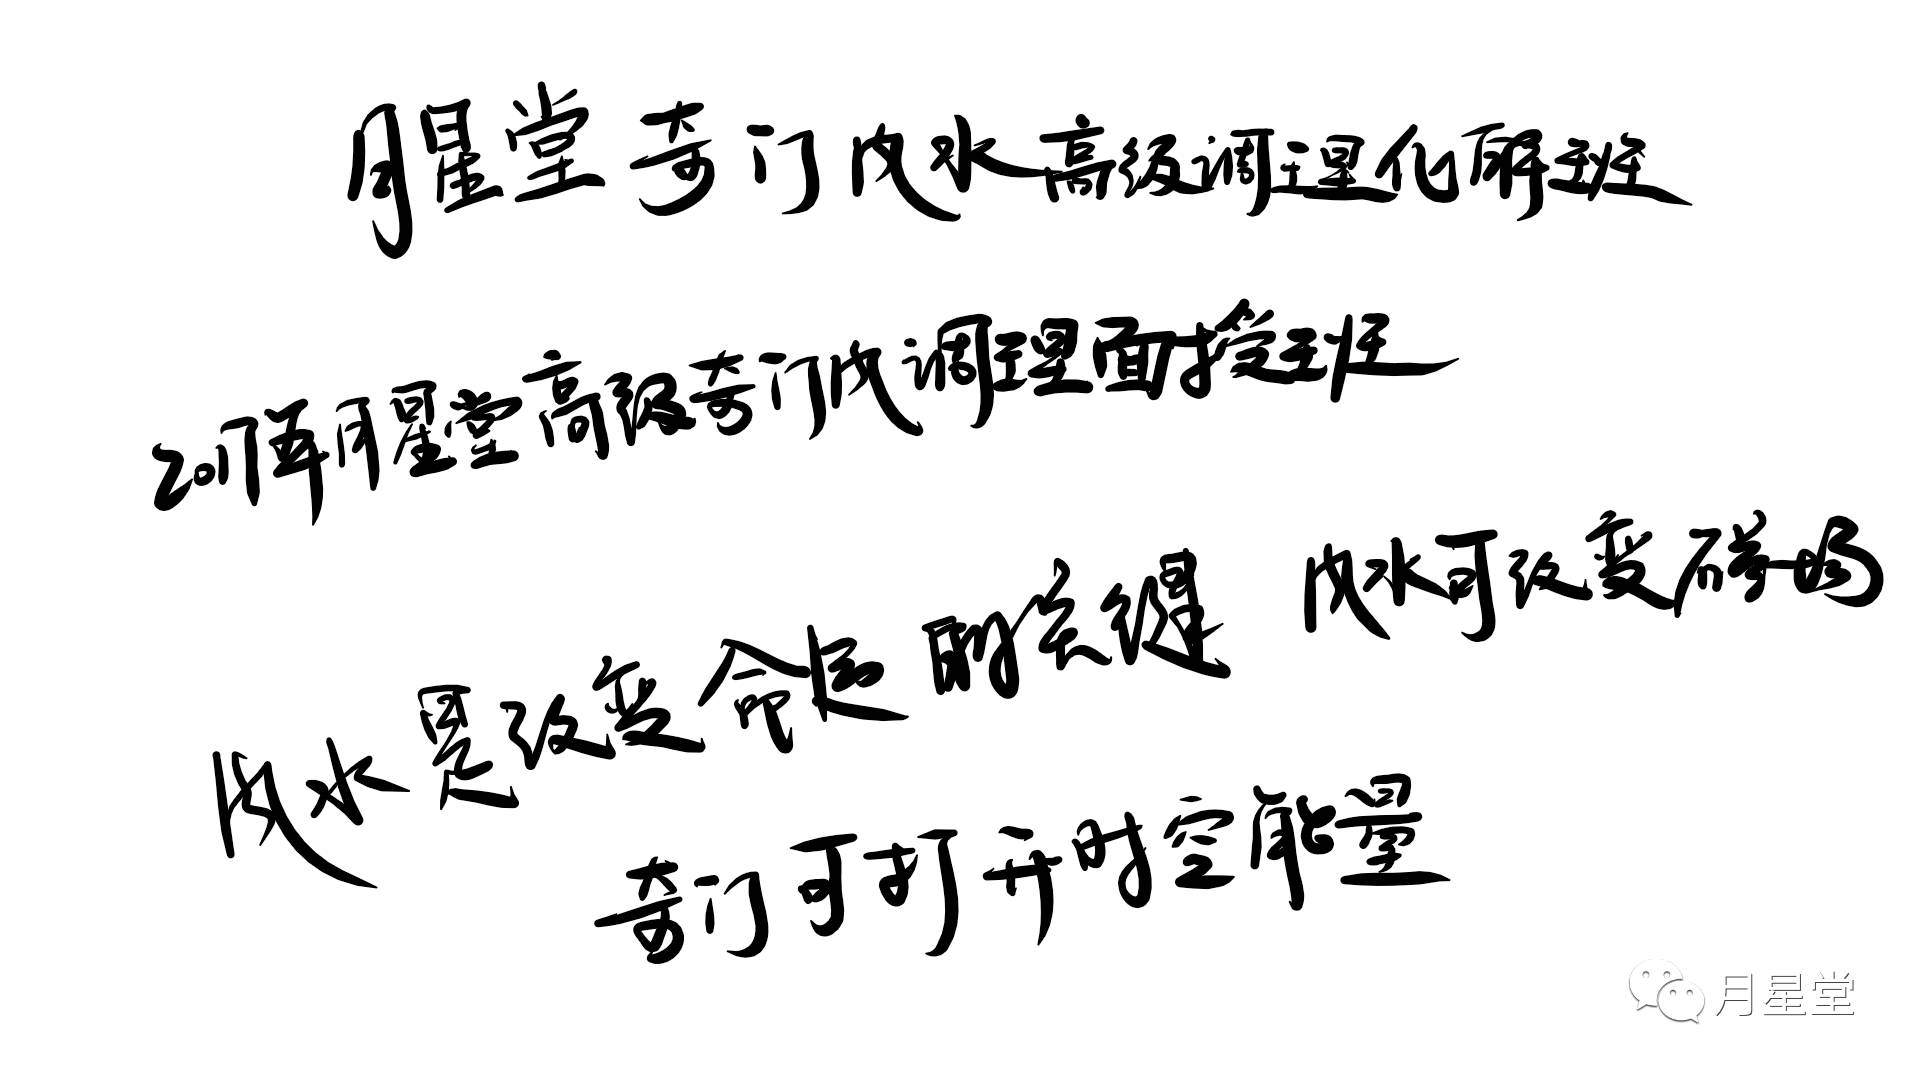 月星堂 奇门风水高级调理化解班
2017年月星堂高级奇门风调理面授班
风水是改变命运的关键 风水可改变磁场
奇门可打开时空能量
月星堂